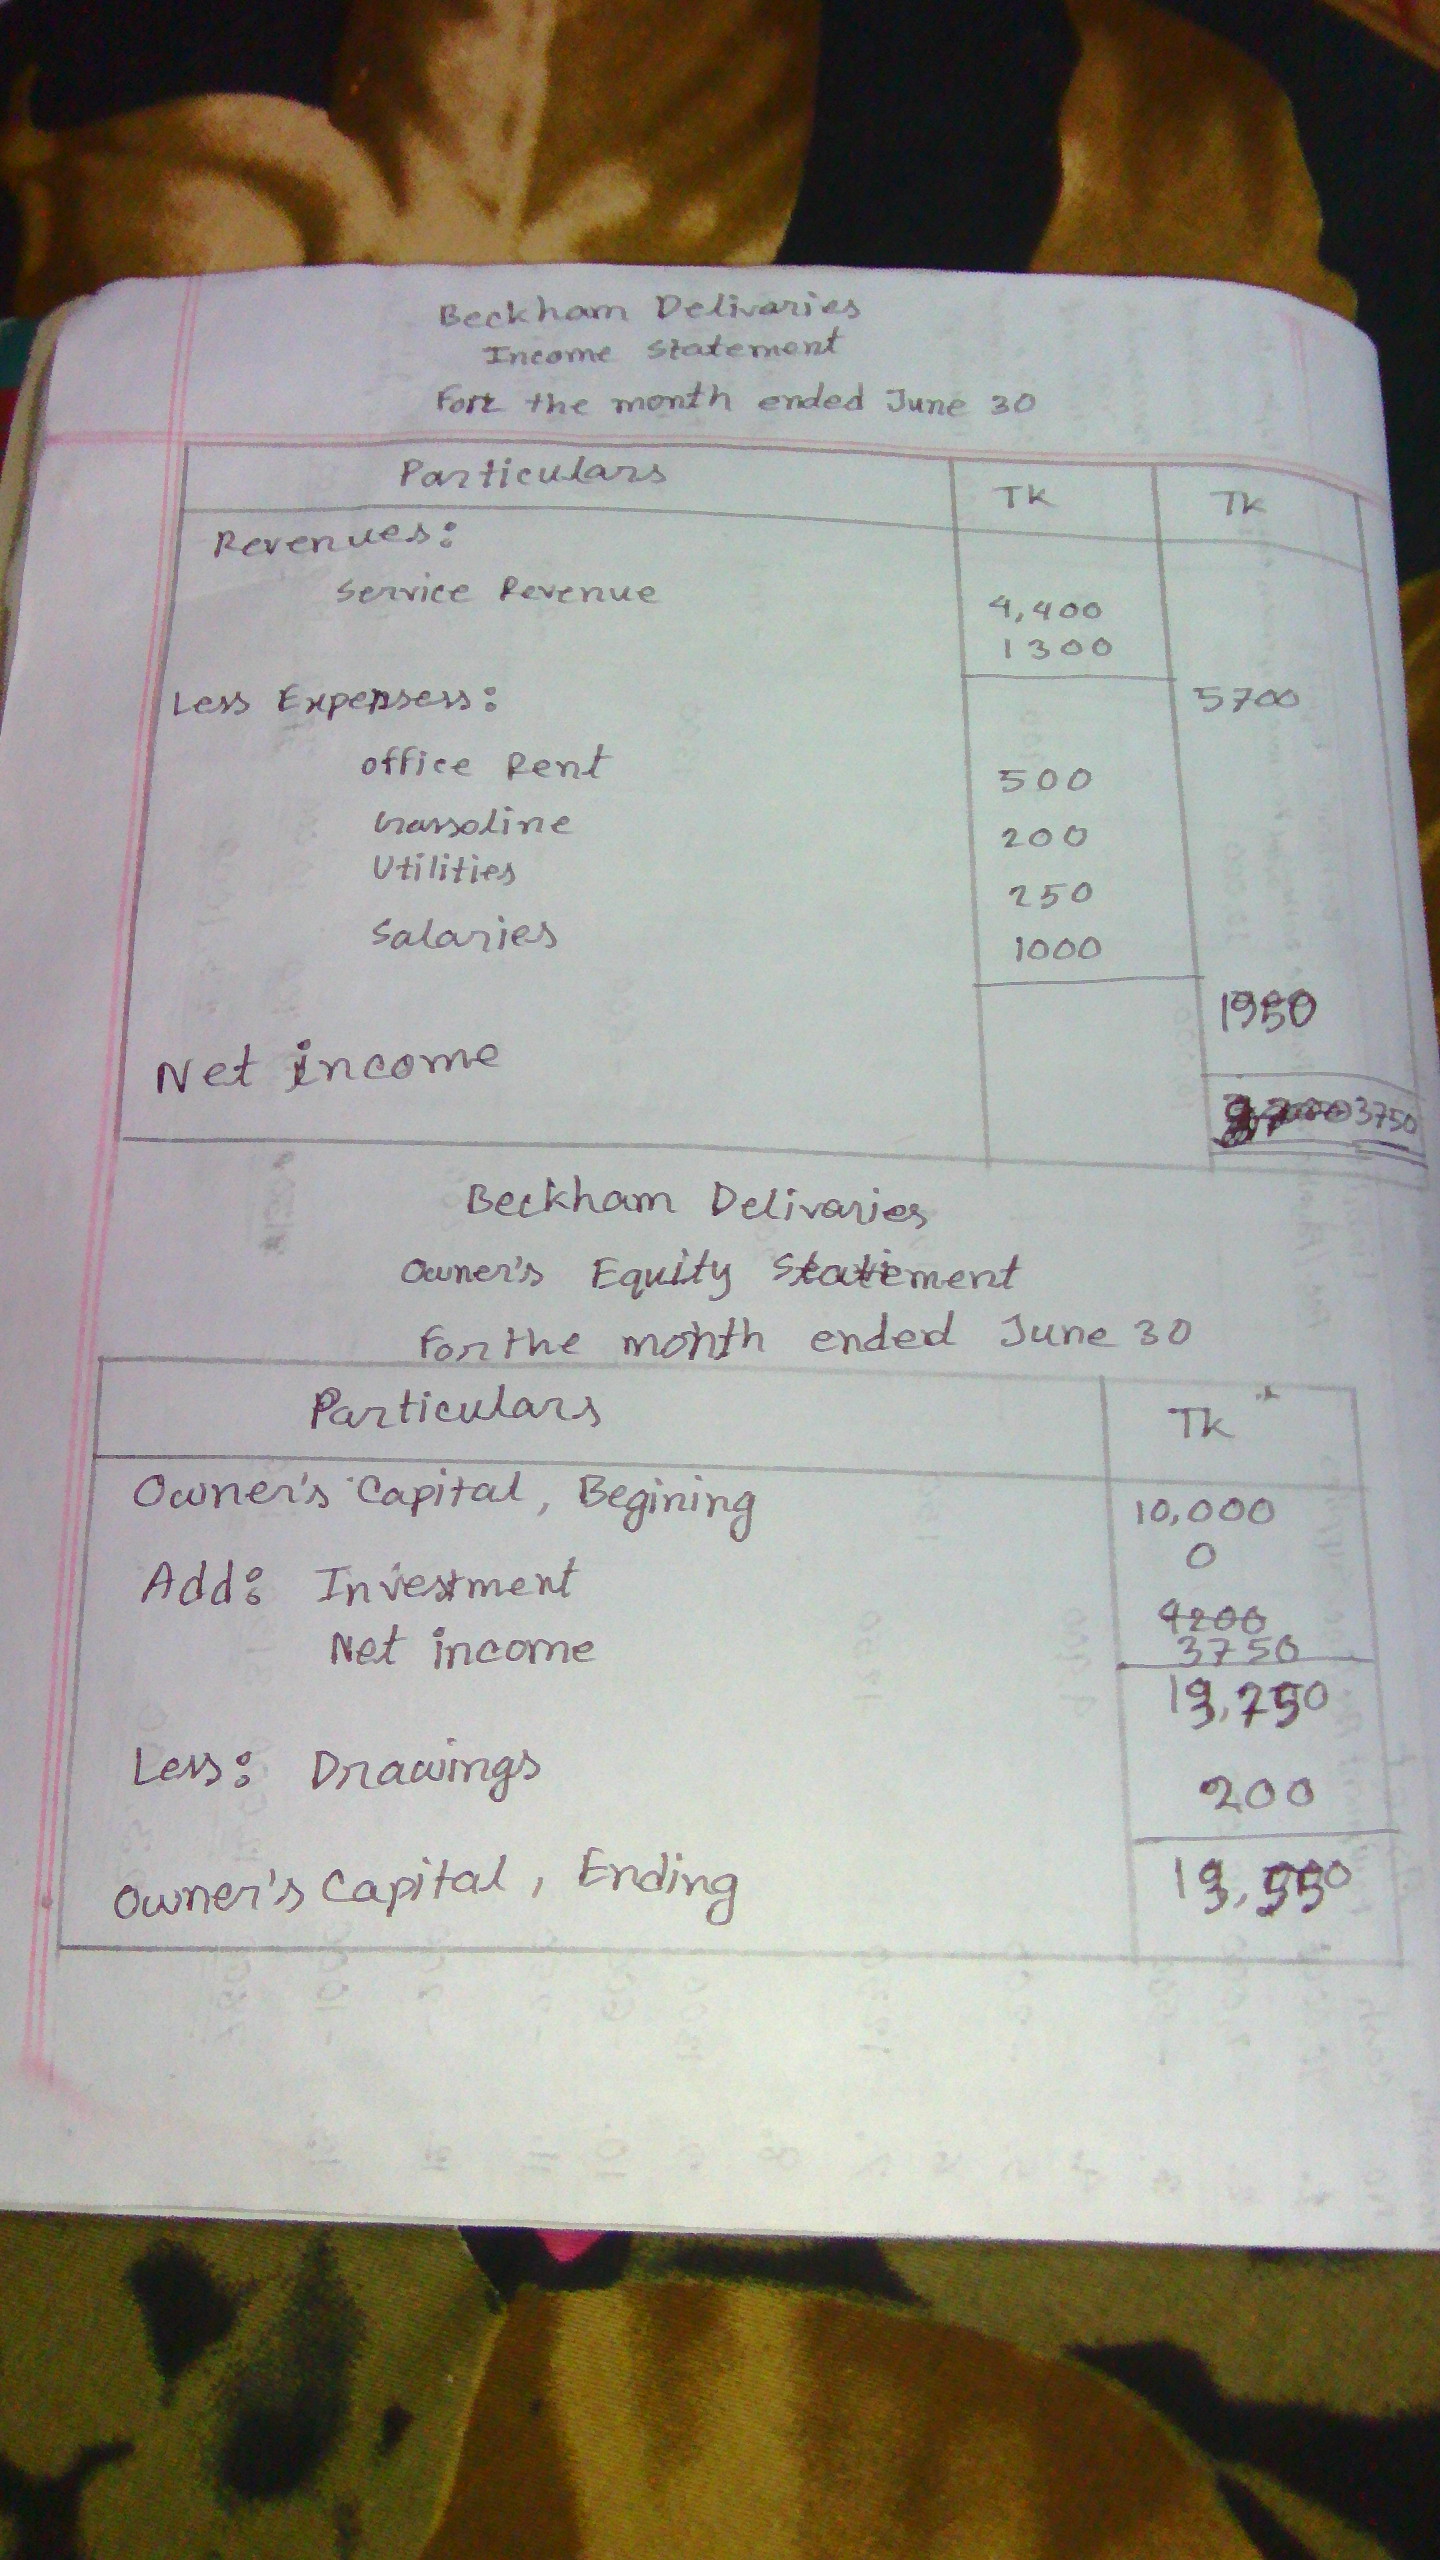 Beckham Delivaries
Income Statement
For the month ended June 30
Particulars Tk Tk
Revenues:
Service Revenue 4,400
1300
Less Expensess: 5700
office Rent 500
Gassoline 200
Utilities 250
Salaries 1000
1950
Net income 3750
Beckham Delivaries
Owner's Equity Statement
For the month ended June 30
Particulars Tk
Owner's Capital, Begining 10,000
Add: Investment 0
4200
Net income 3750
13,750
Less: Drawings 200
Owner's Capital, Ending 13,550